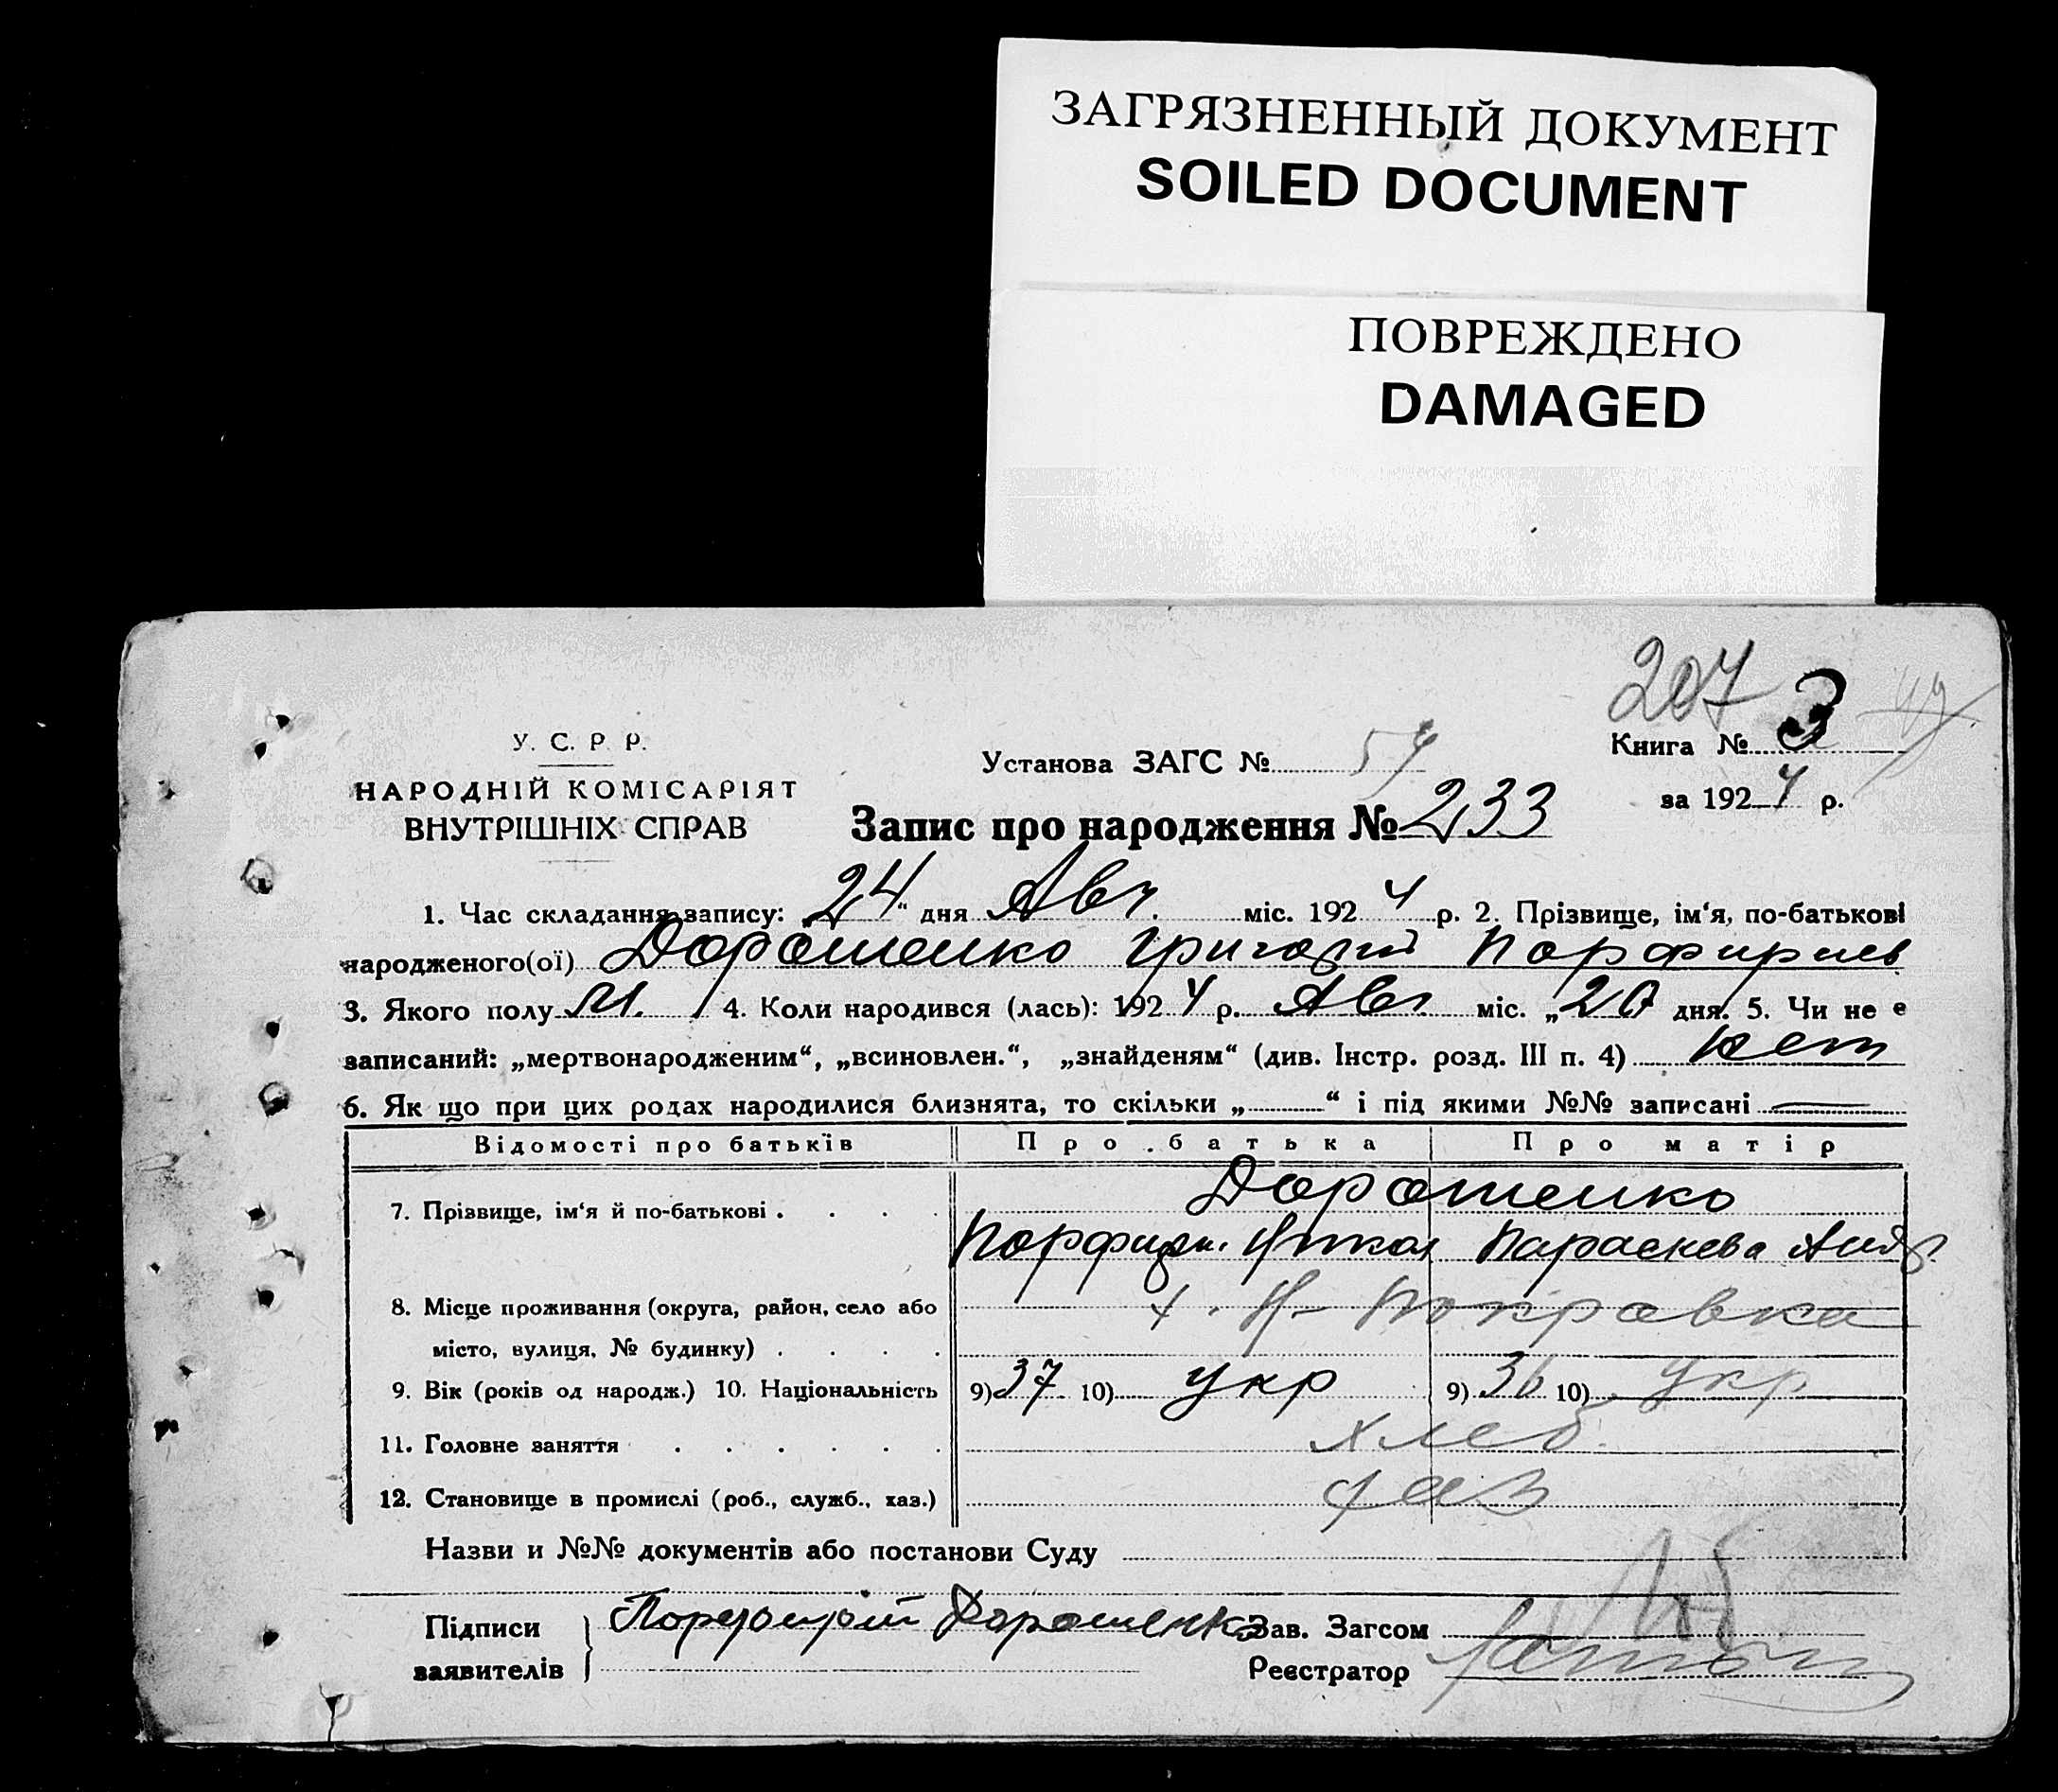 ЗАГРЯЗНЕННЫЙ ДОКУМЕНТ
SOILED DOCUMENT
ПОВРЕЖДЕНО
DAMAGED
207
У. С. Р. Р.
НАРОДНІЙ КОМІСАРІЯТ
ВНУТРІШНІХ СПРАВ
Установа ЗАГС №
Книга № 3
за 1924 р.
Запис про народження № 233
1. Час складання запису: 24 " дня Авг. міс. 1924 р. 2. Прізвище, ім‘я, по-батькові
народженого(ої) Дорошенко Григорій Порфириев
3. Якого полу М. 4. Коли народився (лась): 1924 р. Авг міс. „20 дня. 5. Чи не е
записаний: „мертвонародженим“, „всиновлен.“, „знайденям“ (див. Інстр. розд. III п. 4) нет
6. Як що при цих родах народилися близнята, то скільки „ “ і під якими №№ записані —
Відомості про батьків Про батька Про матір
Дорошенко
7. Прізвище, ім‘я й по-батькові . . . .
Порфири. Никол Параскева Андр
8. Місце проживання (округа, район, село або
х. Н- Покровка
місто, вулиця, № будинку) . . . .
9. Вік (років од народж.) 10. Національність 9) 37 10) укр 9) 36 10) укр
11. Головне заняття . . . . . . хлеб.
12. Становище в промислі (роб., служб., хаз.) хаз
Назви и №№ документів або постанови Суду
Підписи
заявителів
Порфирій Дорошенко
Зав. Загсом
Реєстратор